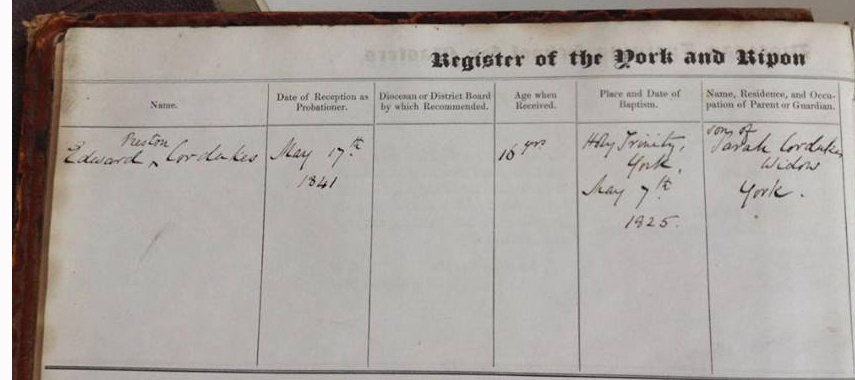 Register of the York and Ripon
Name.
Date of Reception as
Probationer.
Diocesan or District Board
by which Recommended.
Age when
Received.
Place and Date of
Baptism.
Name, Residence, and Occu-
pation of Parent or Guardian.
Preston
Edward ^ Cordukes
May 17th
1841
16 yrs
Holy Trinity,
York,
May 7th
1825.
son of
Sarah Cordukes
Widow
York.